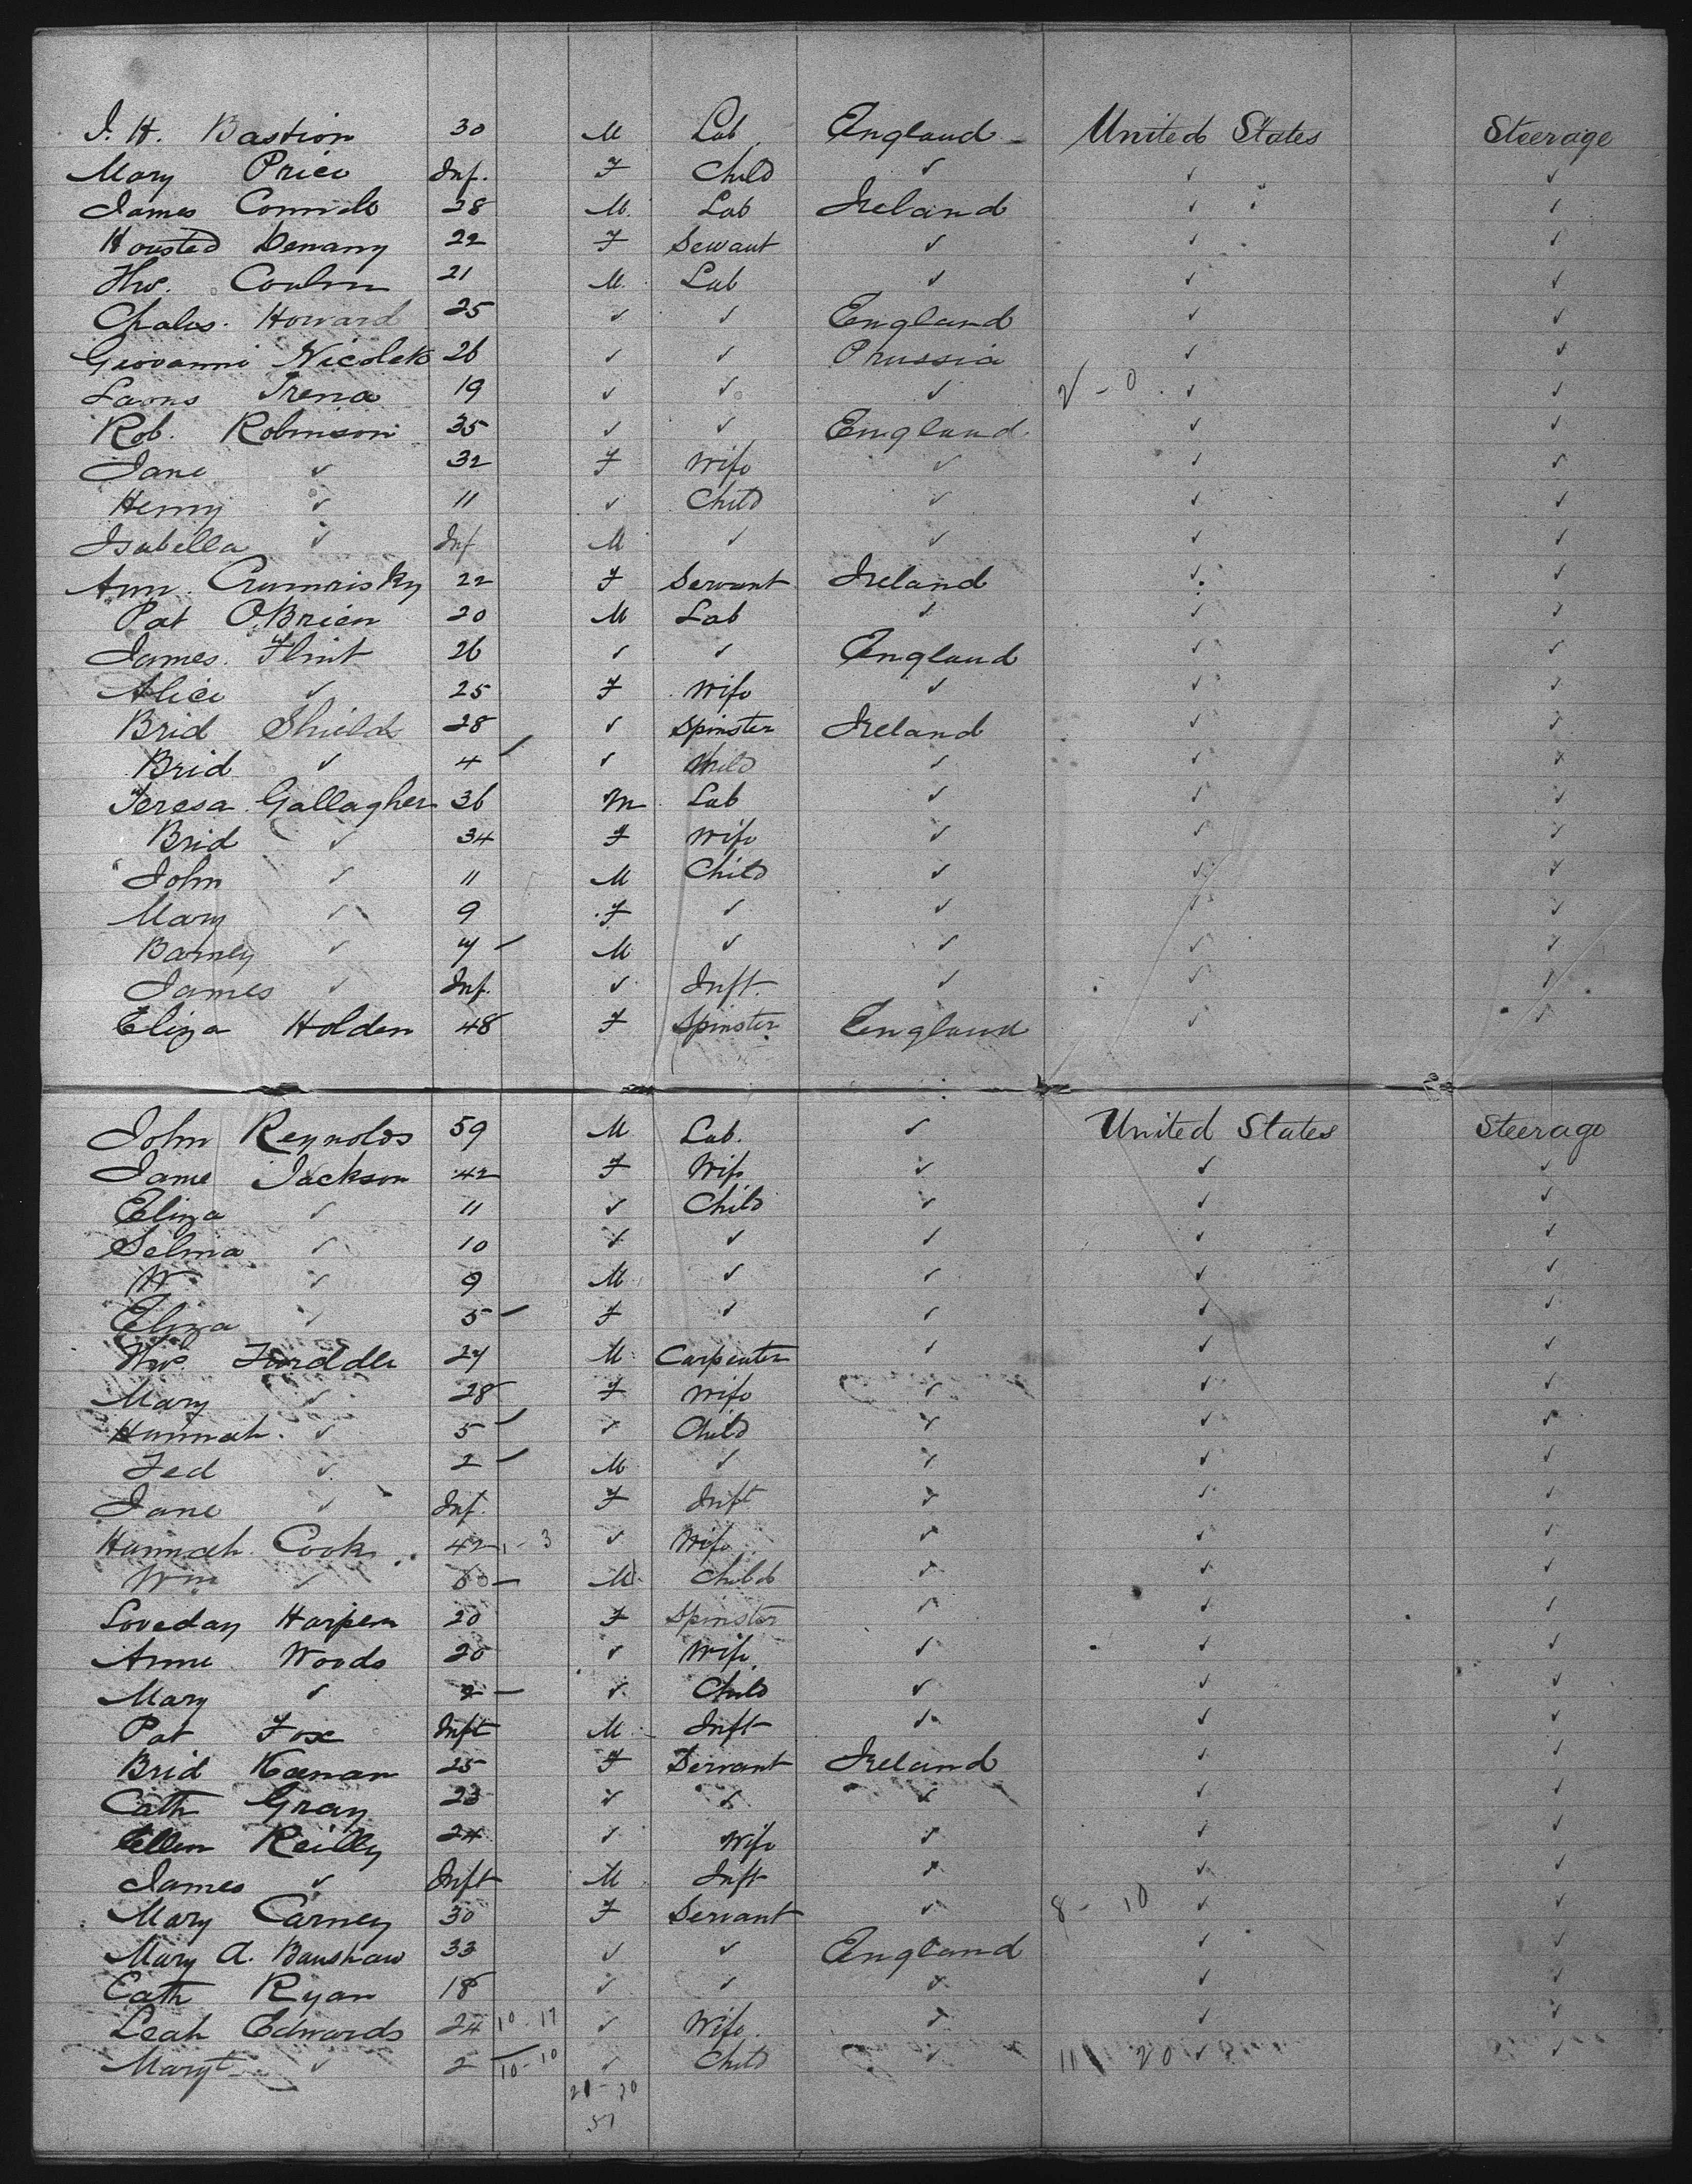 J. H. Bastion 30 M Lab England United States Steerage
Mary Price Inf. F Child ✓ ✓ ✓
James 28 M. Lab Ireland ✓ ✓
Denany 22 F Servant ✓ ✓ ✓
21 M. Lab ✓ ✓ ✓
Howard 25 ✓ ✓ England ✓ ✓
Giovanni 26 ✓ ✓ Prussia ✓ ✓
Trena 19 ✓ ✓ ✓ ✓ ✓
Rob. Robinson 35 ✓ ✓ England ✓ ✓
Jane ✓ 32 F Wife ✓ ✓ ✓
Henry ✓ 11 ✓ Child ✓ ✓ ✓
Isabella ✓ Inf M ✓ ✓ ✓ ✓
Ann 22 F Servant Ireland ✓ ✓
Pat O'Brien 20 M Lab ✓ ✓ ✓
James Flint 26 ✓ ✓ England ✓ ✓
Alice ✓ 25 F Wife ✓ ✓ ✓
Brid Shields 28 ✓ Spinster Ireland ✓ ✓
Brid ✓ 4 – ✓ Child ✓ ✓ ✓
Teresa Gallagher 36 M Lab ✓ ✓ ✓
Brid ✓ 34 F Wife ✓ ✓ ✓
John ✓ 11 M Child ✓ ✓ ✓
Mary ✓ 9 F ✓ ✓ ✓ ✓
Barney ✓ – M ✓ ✓ ✓ ✓
James ✓ Inf. ✓ Inft. ✓ ✓ ✓
Eliza Holden 48 F Spinster England ✓ ✓
John Reynolds 59 M Lab. ✓ United States Steerage
Jane Jackson 42 F Wife ✓ ✓ ✓
Eliza ✓ 11 ✓ Child ✓ ✓ ✓
Selma ✓ 10 ✓ ✓ ✓ ✓ ✓
W ✓ 9 M ✓ ✓ ✓ ✓
Eliza ✓ 5 – F ✓ ✓ ✓ ✓
M Carpenter ✓ ✓ ✓
Mary ✓ 28 F Wife ✓ ✓ ✓
Hannah ✓ 5 – ✓ Child ✓ ✓ ✓
Fed ✓ 2 – M ✓ ✓ ✓ ✓
Jane ✓ Inf. F Inft ✓ ✓ ✓
Hannah Cook 42 1 - 3 ✓ Wife ✓ ✓ ✓
Wm ✓ – M Child ✓ ✓ ✓
Loveday Harper 20 F Spinster ✓ ✓ ✓
Annie Woods 20 ✓ Wife ✓ ✓ ✓
Mary ✓ 2 – ✓ Child ✓ ✓ ✓
Pat Fox Inft M Inft ✓ ✓ ✓
Brid Keenan 25 F Servant Ireland ✓ ✓
Cath Gray 23 ✓ ✓ ✓ ✓ ✓
Ellen Reilly 24 ✓ Wife ✓ ✓ ✓
James ✓ Inft M Inft ✓ ✓ ✓
Mary Carney 30 F Servant ✓ 8 - 10 ✓ ✓
Mary A. Banshaw 33 ✓ ✓ England ✓ ✓
Cath Ryan 18 ✓ ✓ ✓ ✓ ✓
Leah Edwards 24 10 - 17 ✓ Wife ✓ ✓ ✓
Mary ✓ 2 10 - 10 ✓ Child ✓ 11 20 ✓ ✓